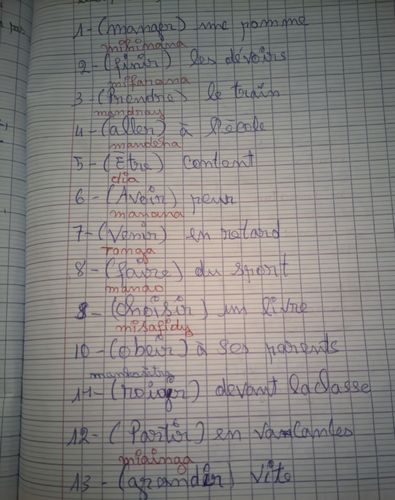 1-(manger) une pomme
mihinana
2-(finir) les dévoirs
mifarana
3-(Prendre) le train
mandray
4-(aller) à l'école
mandeha
5-(Être) content
dia
6-(Avoir) peur
manana
7-(Venir) en retard
Tonga
8-(faire) du sport
manao
9-(choisir) un livre
misafidy
10-(obeir) à ses parents
11-( ) devant la classe
12-(Partir) en vacances
miainga
13-(grandir) vite